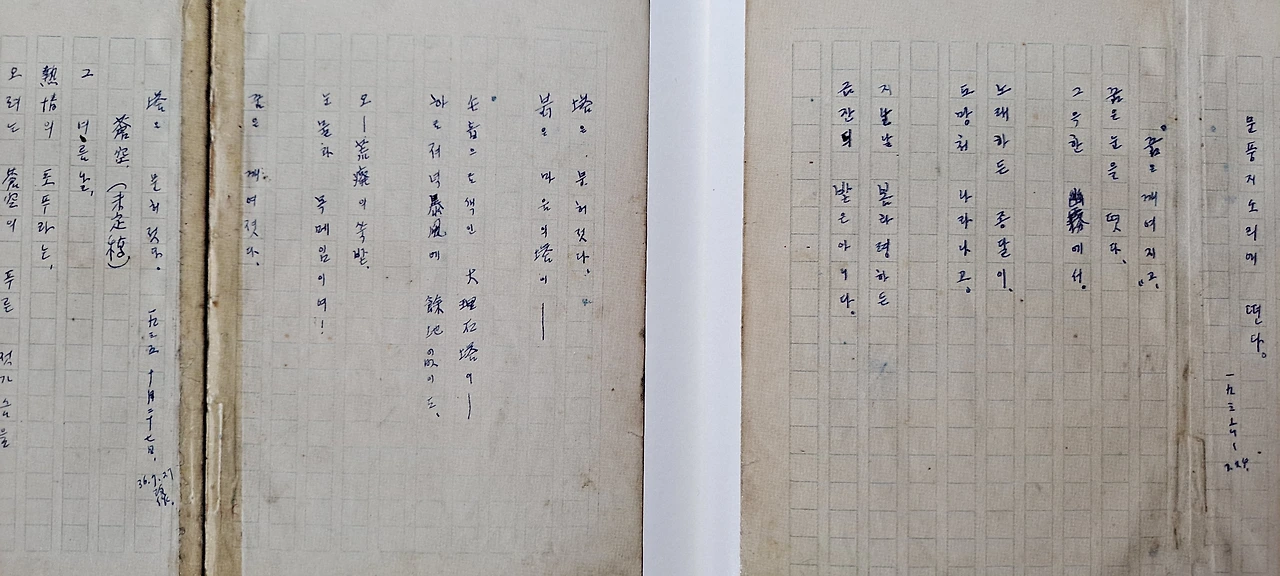 문풍지소리에 떤다。
꿈은 깨여지고
꿈은 눈을 떳다、
그윽한 幽霧에서。
노래하든 종달이、
도망처 나라나고。
지난날 봄타령하든
금잔듸 밭은 아니다。
塔은 문허젓다、
붉은 마음의 塔이 —
손톱으로 색인 大理石塔이—
하로저녁 暴風에 餘地없이도、
오—荒廢의 쑥밭、
눈물과 목메임이여!
꿈은 깨여젓다、
塔은 문허젓다。
一九三五、十月二十七日、
36.7.27 改作
蒼空、(未定稿)
그 여름날、
熱情의 포푸라는、
오려는 蒼空의 푸른 젓가슴을